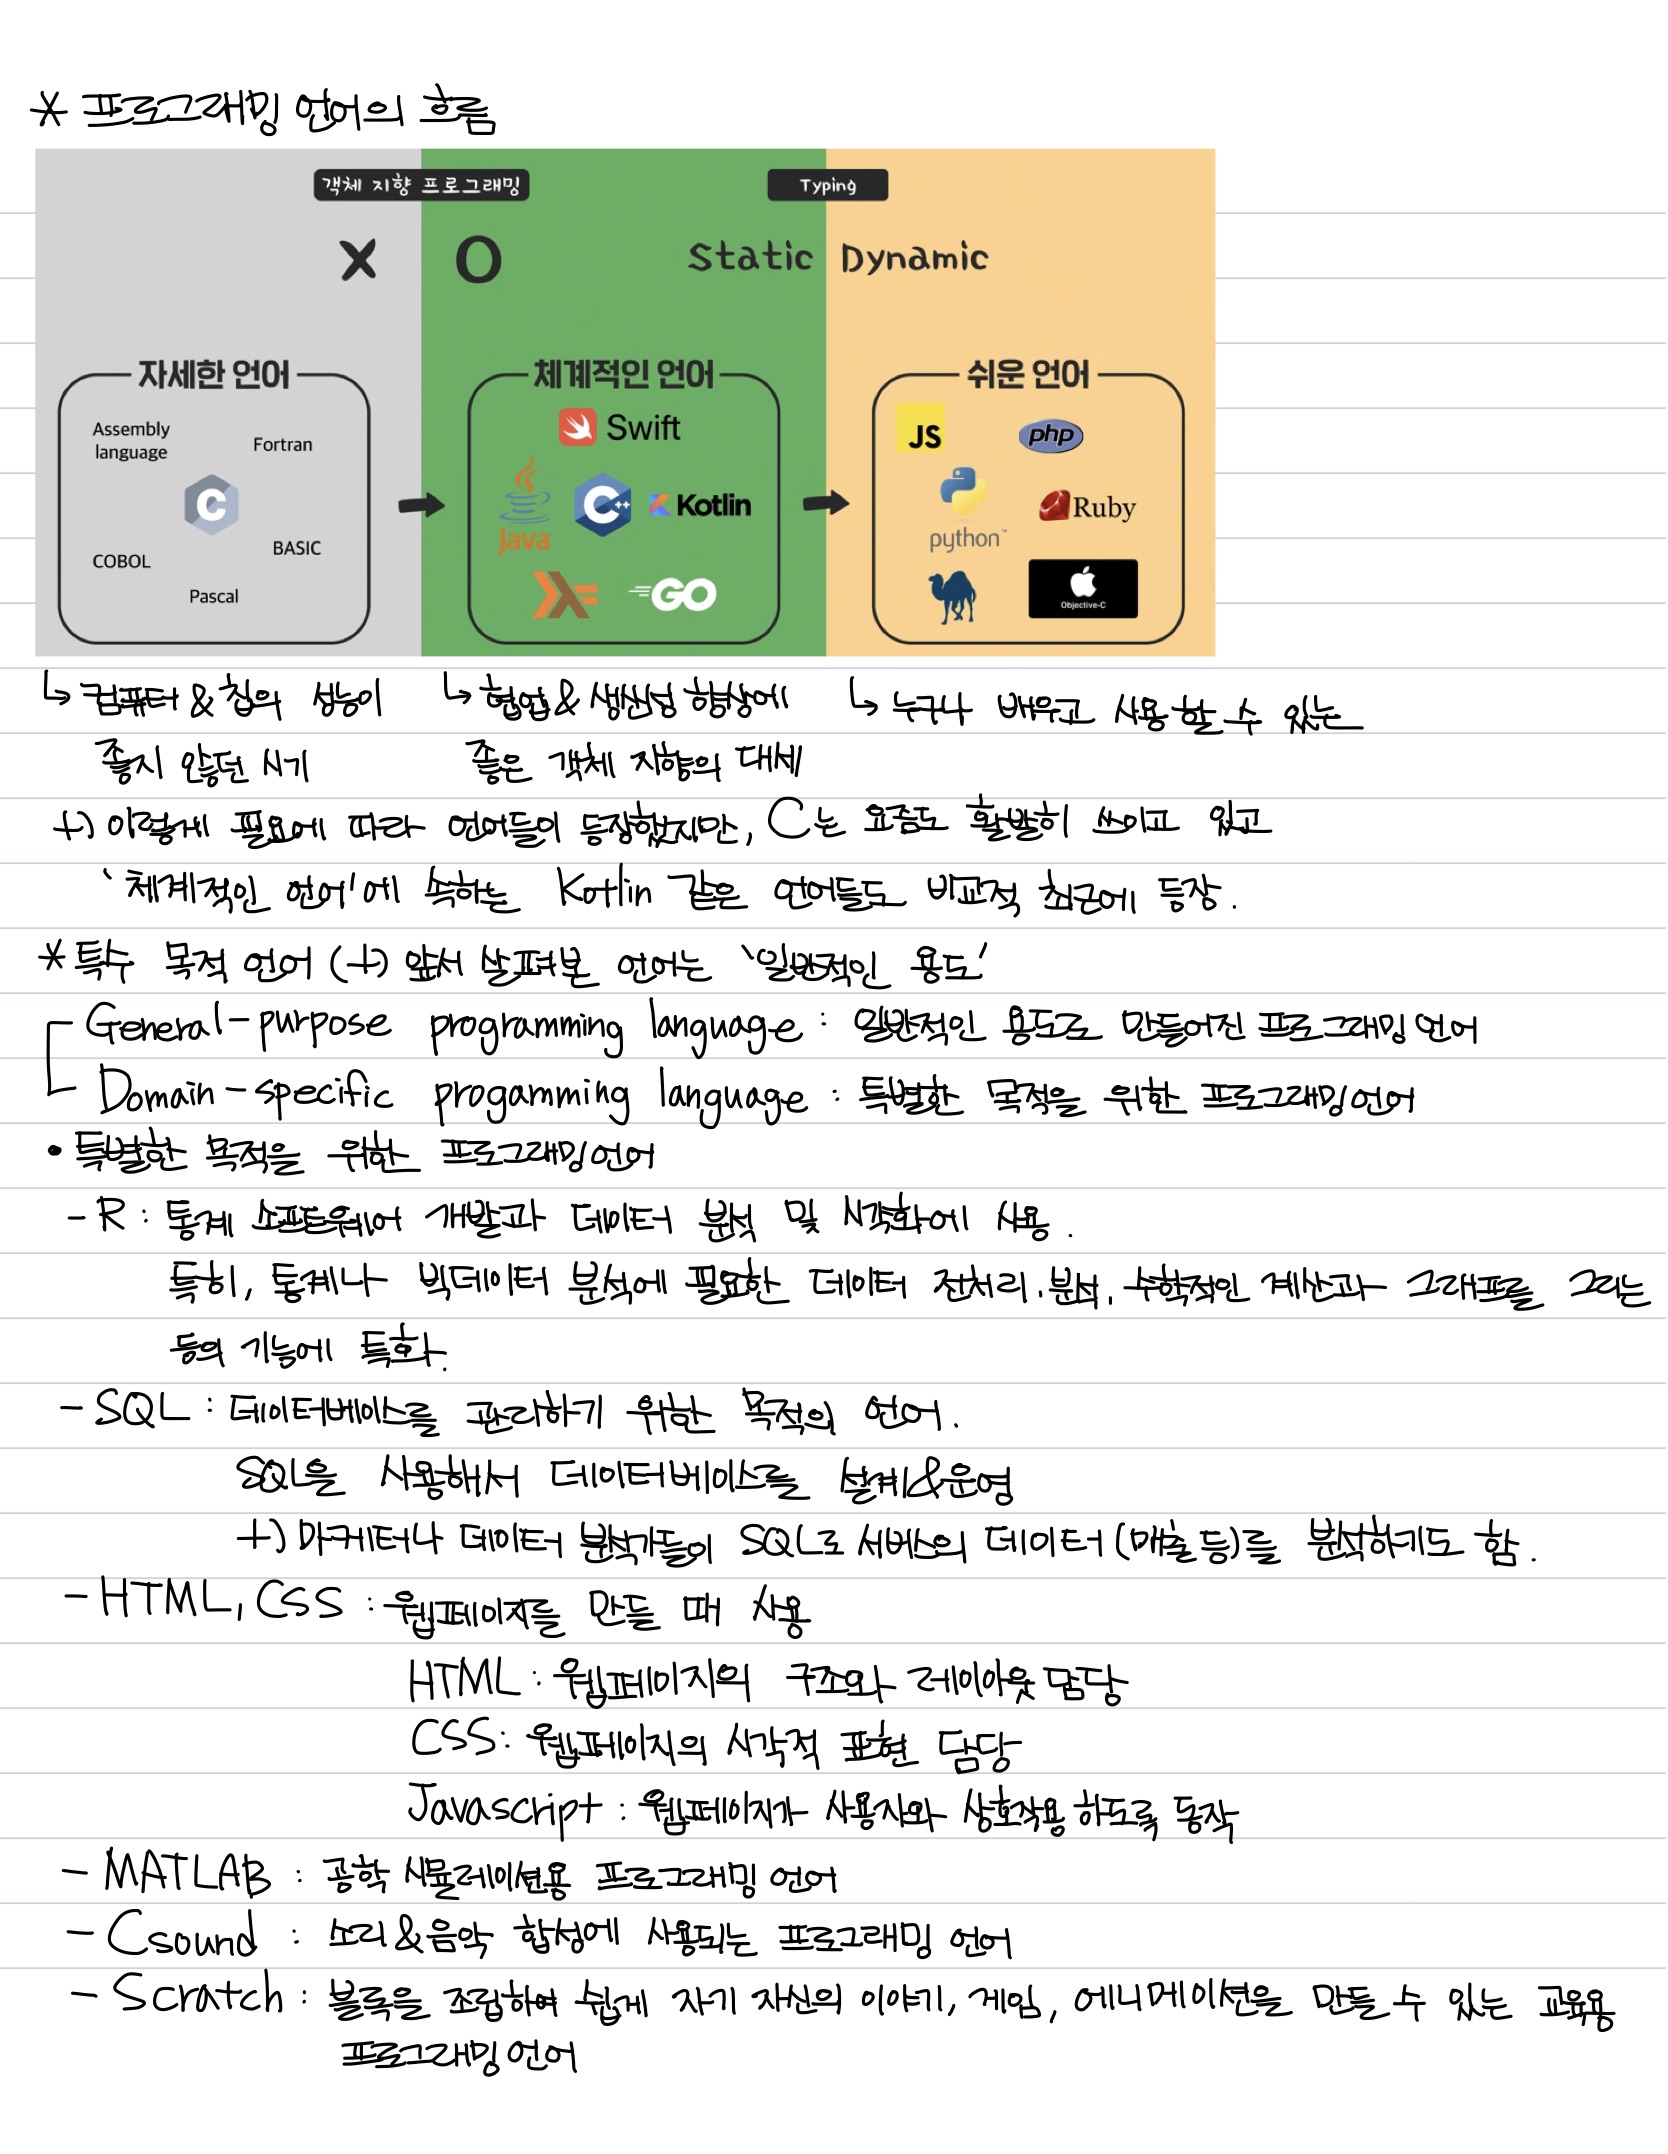 * 프로그래밍 언어의 흐름
객체 지향 프로그래밍
Typing
X O
Static Dynamic
자세한 언어
Assembly language
Fortran
C
COBOL
BASIC
Pascal
체계적인 언어
Swift
Java
C++
Kotlin
GO
쉬운 언어
JS
php
python™
Ruby
Objective-C
↳ 컴퓨터 & 칩의 성능이
좋지 않던 시기
↳ 협업 & 생산성 향상에
좋은 객체 지향의 대세
↳ 누구나 배우고 사용할 수 있는
+) 이렇게 필요에 따라 언어들이 등장했지만, C는 요즘도 활발히 쓰이고 있고
'체계적인 언어'에 속하는 Kotlin 같은 언어들도 비교적 최근에 등장.
* 특수 목적 언어 (+) 앞서 살펴본 언어는 '일반적인 용도'
General-purpose programming language : 일반적인 용도로 만들어진 프로그래밍 언어
Domain-specific progamming language : 특별한 목적을 위한 프로그래밍 언어
• 특별한 목적을 위한 프로그래밍 언어
- R : 통계 소프트웨어 개발과 데이터 분석 및 시각화에 사용.
특히, 통계나 빅데이터 분석에 필요한 데이터 전처리, 분석, 수학적인 계산과 그래프를 그리는
등의 기능에 특화.
- SQL : 데이터베이스를 관리하기 위한 목적의 언어.
SQL을 사용해서 데이터베이스를 설계&운영
+) 마케터나 데이터 분석가들이 SQL로 서비스의 데이터 (매출 등)를 분석하기도 함.
- HTML, CSS : 웹페이지를 만들 때 사용
HTML : 웹페이지의 구조와 레이아웃 담당
CSS : 웹페이지의 시각적 표현 담당
Javascript : 웹페이지가 사용자와 상호작용 하도록 동작
- MATLAB : 공학 시뮬레이션용 프로그래밍 언어
- Csound : 소리&음악 합성에 사용되는 프로그래밍 언어
- Scratch : 블록을 조립하여 쉽게 자기 자신의 이야기, 게임, 에니메이션을 만들 수 있는 교육용
프로그래밍 언어